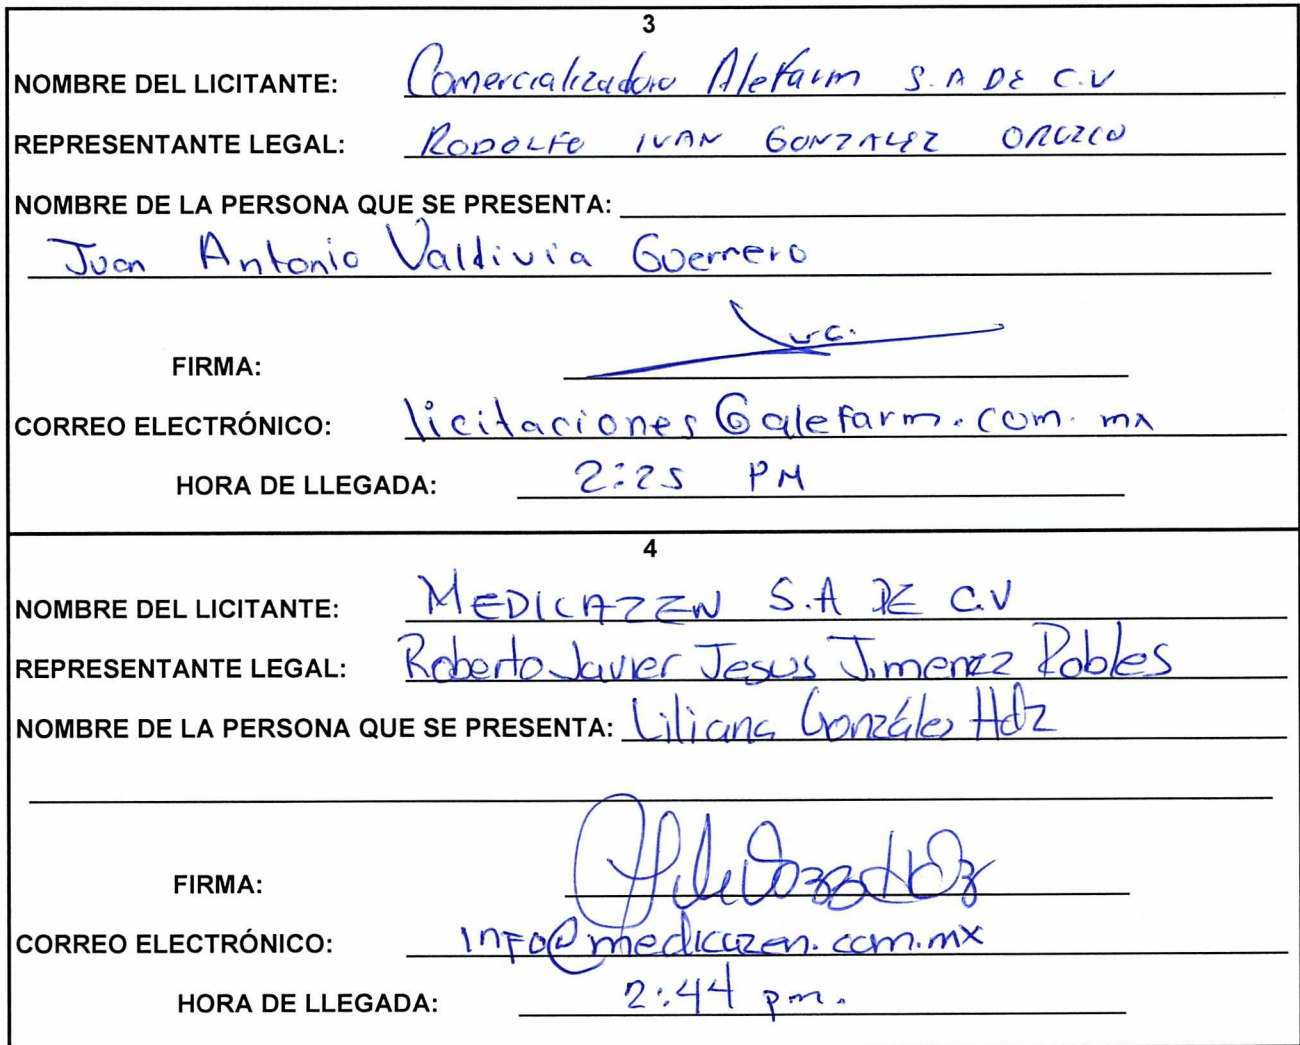 3
NOMBRE DEL LICITANTE: Comercializadora Alefarm S.A DE C.V
REPRESENTANTE LEGAL: RODOLFO IVAN GONZALEZ OROZCO
NOMBRE DE LA PERSONA QUE SE PRESENTA:
Juan Antonio Valdivia Guerrero
FIRMA:
CORREO ELECTRÓNICO: licitaciones@alefarm.com.mx
HORA DE LLEGADA: 2:25 PM
4
NOMBRE DEL LICITANTE: MEDICAZEN S.A DE C.V
REPRESENTANTE LEGAL: Roberto Javier Jesus Jimenez Robles
NOMBRE DE LA PERSONA QUE SE PRESENTA: Liliana González Hdz
FIRMA:
CORREO ELECTRÓNICO: info@medicazen.com.mx
HORA DE LLEGADA: 2:44 pm.